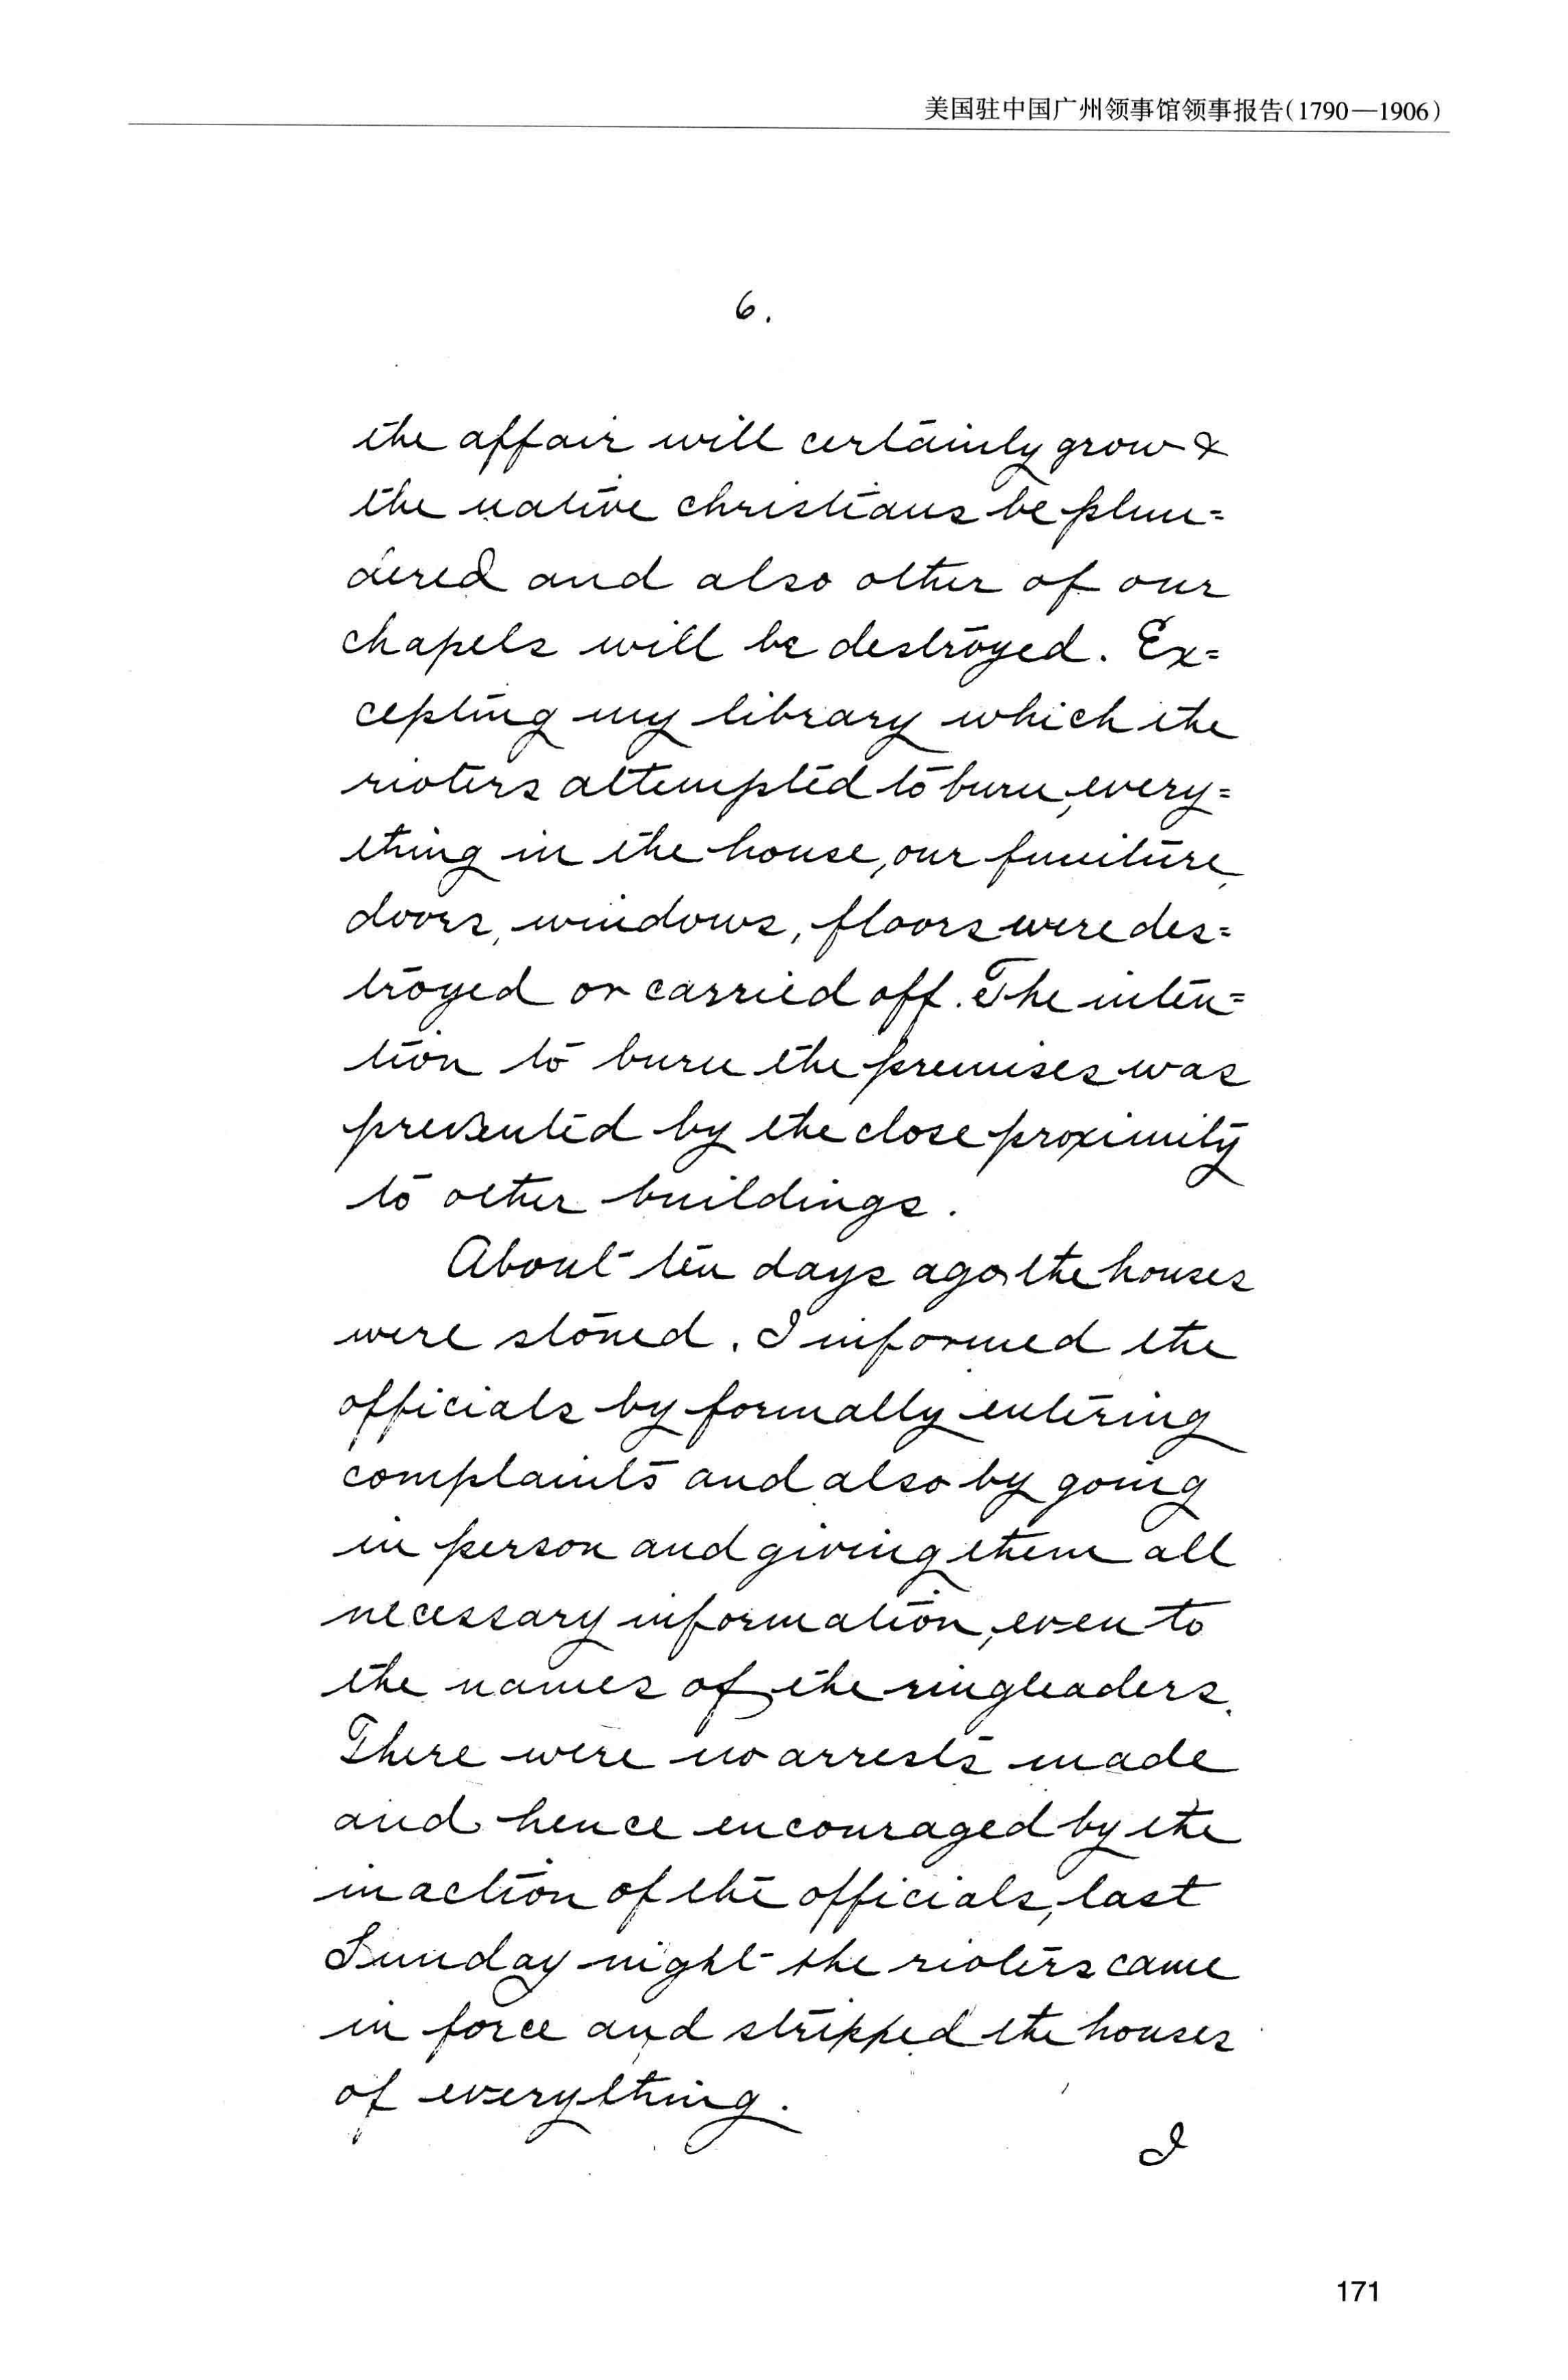 美国驻中国广州领事馆领事报告(1790—1906)
6.
the affair will certainly grow &
the native christians be plun=
dered and also other of our
chapels will be destroyed. Ex=
cepting my library which the
rioters attempted to burn, every=
thing in the house, our funiture,
doors, windows, floors were des=
troyed or carried off. The inten=
tion to burn the premises was
prevented by the close proximity
to other buildings.
About ten days ago the houses
were stoned. I informed the
officials by formally entering
complaints and also by going
in person and giving them all
necessary information, even to
the names of the ringleaders.
There were no arrests made
and hence encouraged by the
inaction of the officials, last
Sunday night the rioters came
in force and stripped the houses
of everything.
I
171